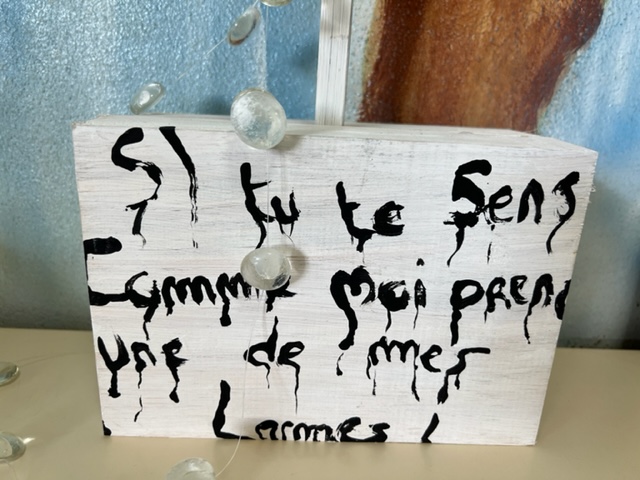 Si tu te Sens
Comme Moi prend
une de mes
Larmes !